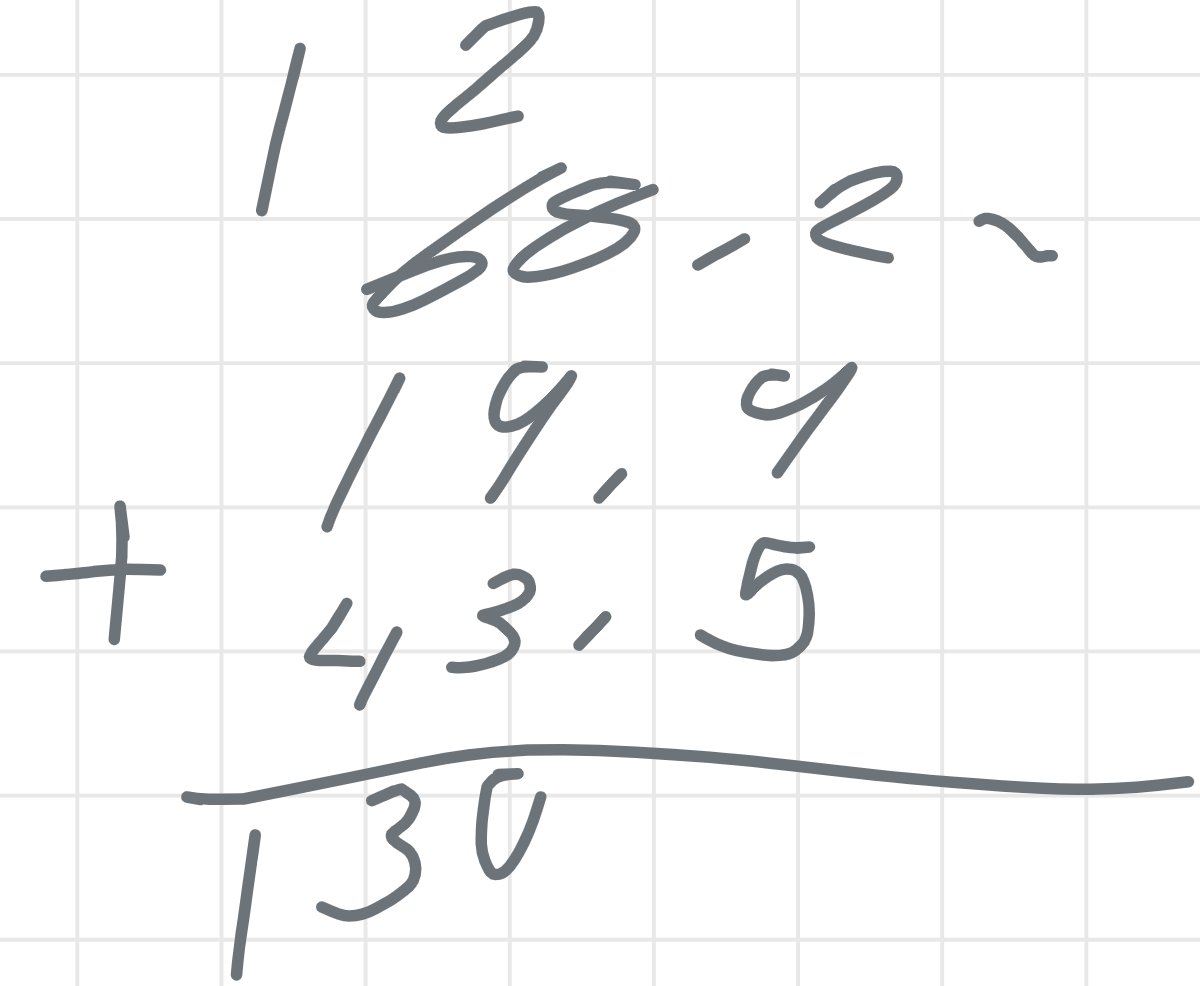 1 2
68,2~
19,9
+ 43,5
130